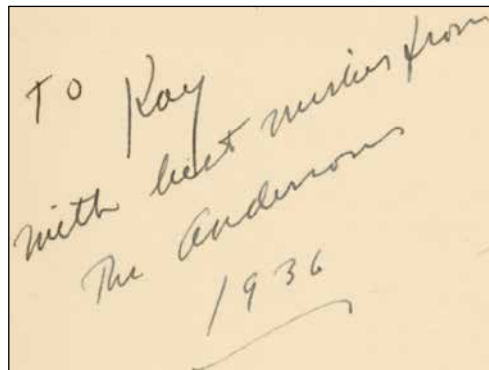 To Kay
with best wishes from
The Andersons
1936